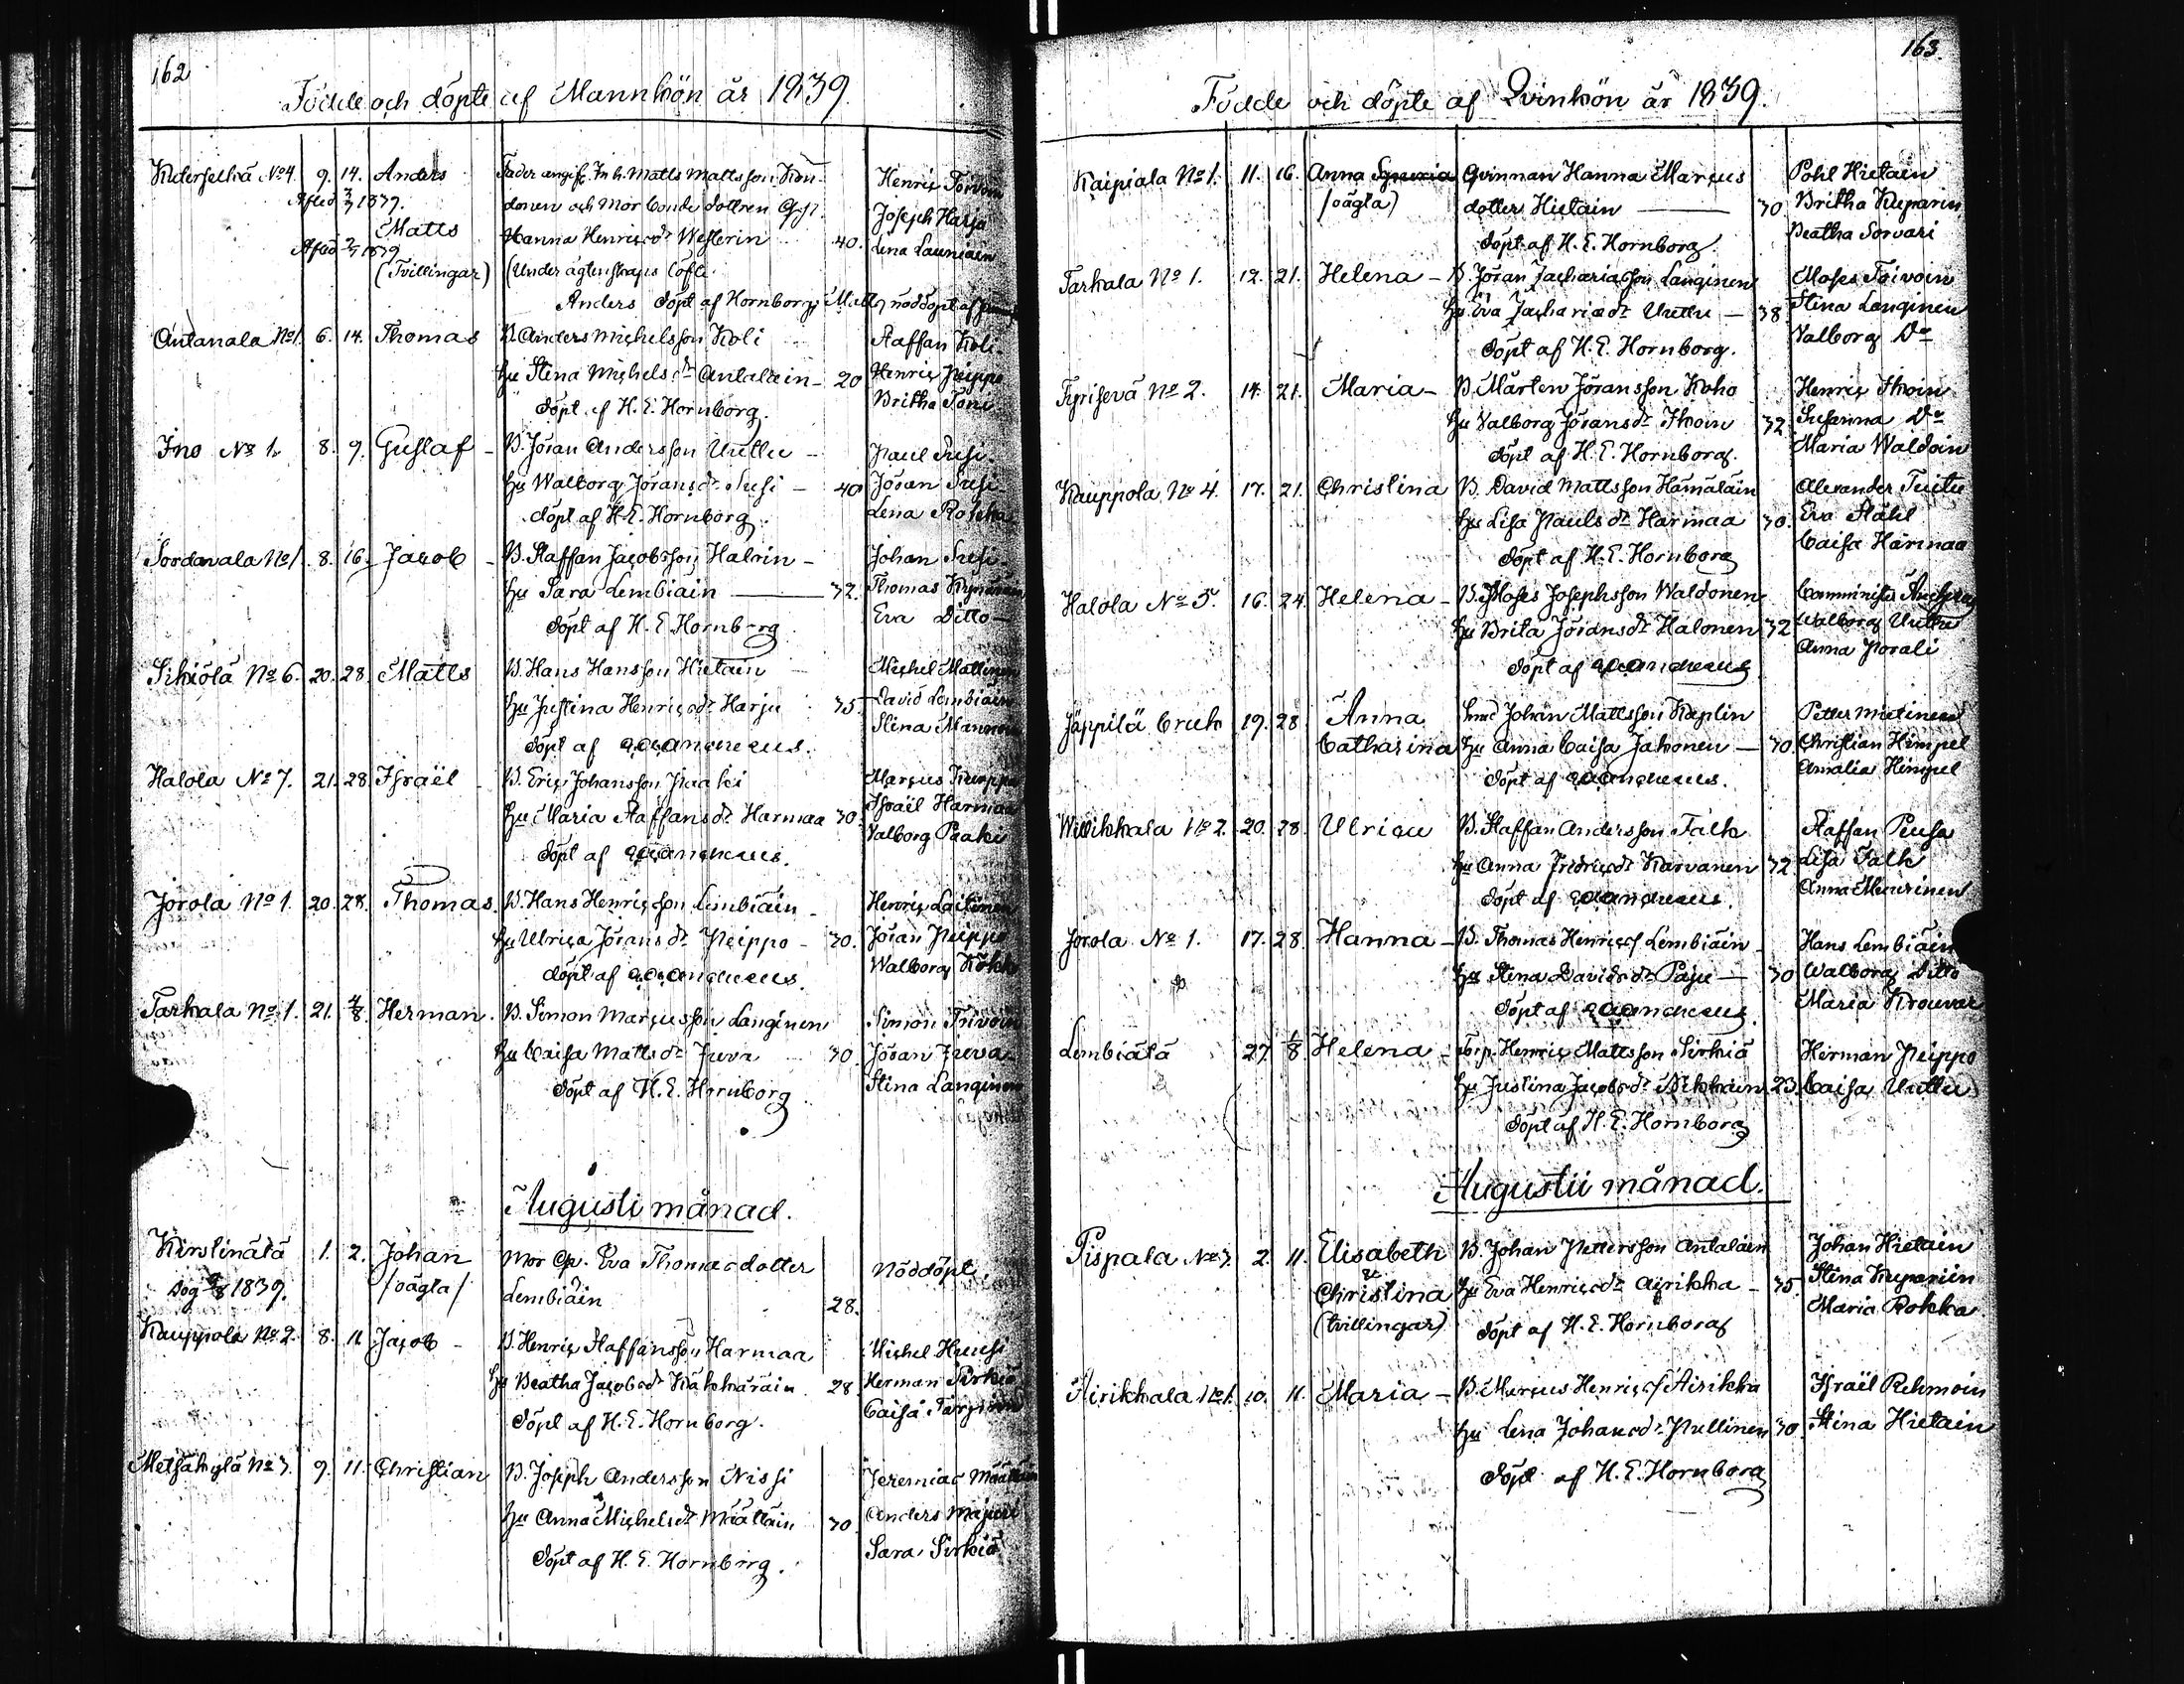 162
Födde och döpte af Mannkön år 1839.
No 4. 9. 14. Anders Fader angifv. Inh. Matts Mattsson Henric Toivoin
Afled 1839. donen och Mor Bonde dottren Joseph Harja
Matts Hanna Henricsdr Westerin 40. Lena Launiain
Afled 1839
(Tvillingar) (Under ägtenskaps löfte.
Anders döpt af Hornborg, Matts nöddöpt af
Antanala No 1. 6. 14. Thomas B. Anders Michelsson Koli Staffan Koli
hu Stina Michelsdr Antalain 20 Henric Peippo
döpt af H. E. Hornborg. Britha Toni
Ino No 1. 8. 9. Gustaf - B. Jöran Andersson Uuttu - Paul Susi
hu Walborg Jöransdr Susi - 40 Jöran Susi
döpt af H. E. Hornborg. Lena Rokka
Sordavala No 1. 8. 16. Jacob - B. Staffan Jacobsson Halrin - Johan Susi
hu Sara Lembiäin 32. Thomas
döpt af H. E. Hornborg Eva Ditto
Sikiölä No 6. 20. 28. Matts B. Hans Hansson Hietain Michel Mattinen
hu Justina Henricsdr Harju 35 David Lembiäin
döpt af Stina
Halola No 7. 21. 28. Israël - B. Eric Johansson Paaki Marcus Kuippo
hu Maria Staffansdr Harmaa 30. Israël Harmaa
döpt af Valborg Paaki
Jorola No 1. 20. 28. Thomas. B. Hans Henricsson Lembiäin - Henric Laitinen
hu Ulrica Jöransdr Peippo - 30. Jöran Peippo
döpt af Walborg Kökk
Tarkala No 1. 21. 4/8. Herman. B. Simon Marcusson Langinen Simon Toivoin
hu Caisa Mattsdr Juva 30. Jöran Juva
döpt af H. E. Hornborg Stina Langinen
Augusti månad.
Kirstinälä 1. 2. Johan Mor Qp. Eva Thomasdotter Nöddöpt
Dog 1839. /oägta/ Lembiäin 28.
Kauppola No 2. 8. 11 Jacob - B. Henric Staffansson Harmaa Michel Huusi
hu Beatha Jacobsdr Käkkäräin 28 Herman Sirkiä
döpt af H. E. Hornborg. Caisa
Metsäkylä No 3. 9. 11. Christian B. Joseph Andersson Nissi Jeremias Määttäin
hu Anna Michelsdr Määttäin 30 Anders Majuri
döpt af H. E. Hornborg. Sara Sirkiä
163.
Födde och döpte af Qvinkön år 1839.
Kaipiala No 1. 11. 16. Anna Qvinnan Hanna Marcus Pohl Hietain
/oägta/ dotter Hietain 30 Britha Kuparin
döpt af H. E. Hornborg. Beatha Sorvari
Tarkala No 1. 12. 21. Helena - B. Jöran Zachariasson Langinen Moses Toivoin
hu Eva Zachariædr Uuttu - 38 Stina Langinen
döpt af H. E. Hornborg. Valborg Do
No 2. 14. 21. Maria - B. Mårten Jöransson Koho Henric Ihoin
hu Valborg Jöransdr Ihoin 32 Susanna Do
döpt af H. E. Hornborg. Maria Waldoin
Kauppola No 4. 17. 21. Christina B. David Mattsson Hämäläin Alexander Tuitu
hu Lisa Paulsdr Harmaa 30. Eva Ståhl
döpt af H. E. Hornborg Caisa Harmaa
Halola No 5. 16. 24. Helena - B. Moses Josephsson Waldonen Comminister
hu Brita Jöransdr Halonen 32 Walborg Uuttu
döpt af Anna Porali
Jäppilä Bruk 19. 28 Anna Smed Johan Mattsson Kaplin Petter Mietinen
Catharina hu Anna Caisa Jakonen - 30 Christian Himpel
döpt af Amalia Himpel
Wiikkala No 2. 20. 28. Ulrica B. Staffan Andersson Falk Staffan Peusa
hu Anna Fredricsdr Karvanen 32. Lisa Falk
döpt af Anna Muurinen
Jorola No 1. 17. 28. Hanna - B. Thomas Henricss Lembiäin - Hans Lembiäin
hu Stina Davidsdr Paju - 30 Walborg Ditto
döpt af Maria Krouvar
Lembiälä 27. 1/8 Helena - Torp. Henric Mattsson Sirkiä Herman Peippo
hu Justina Jacobsdr 23. Caisa Uuttu
döpt af H. E. Hornborg
Augustii månad.
Pispala No 3. 2. 11. Elisabeth B. Johan Pettersson Antaläin Johan Hietain
& Christina hu Eva Henricsdr Airikka - 35. Stina Kupariin
(tvillingar) döpt af H. E. Hornborg Maria Rokka
Airikkala No 1. 10. 11. Maria - B. Marcus Henricss Airikka Israël Rehmoin
hu Lena Johansdr Pullinen 30 Stina Hietain
döpt af H. E. Hornborg